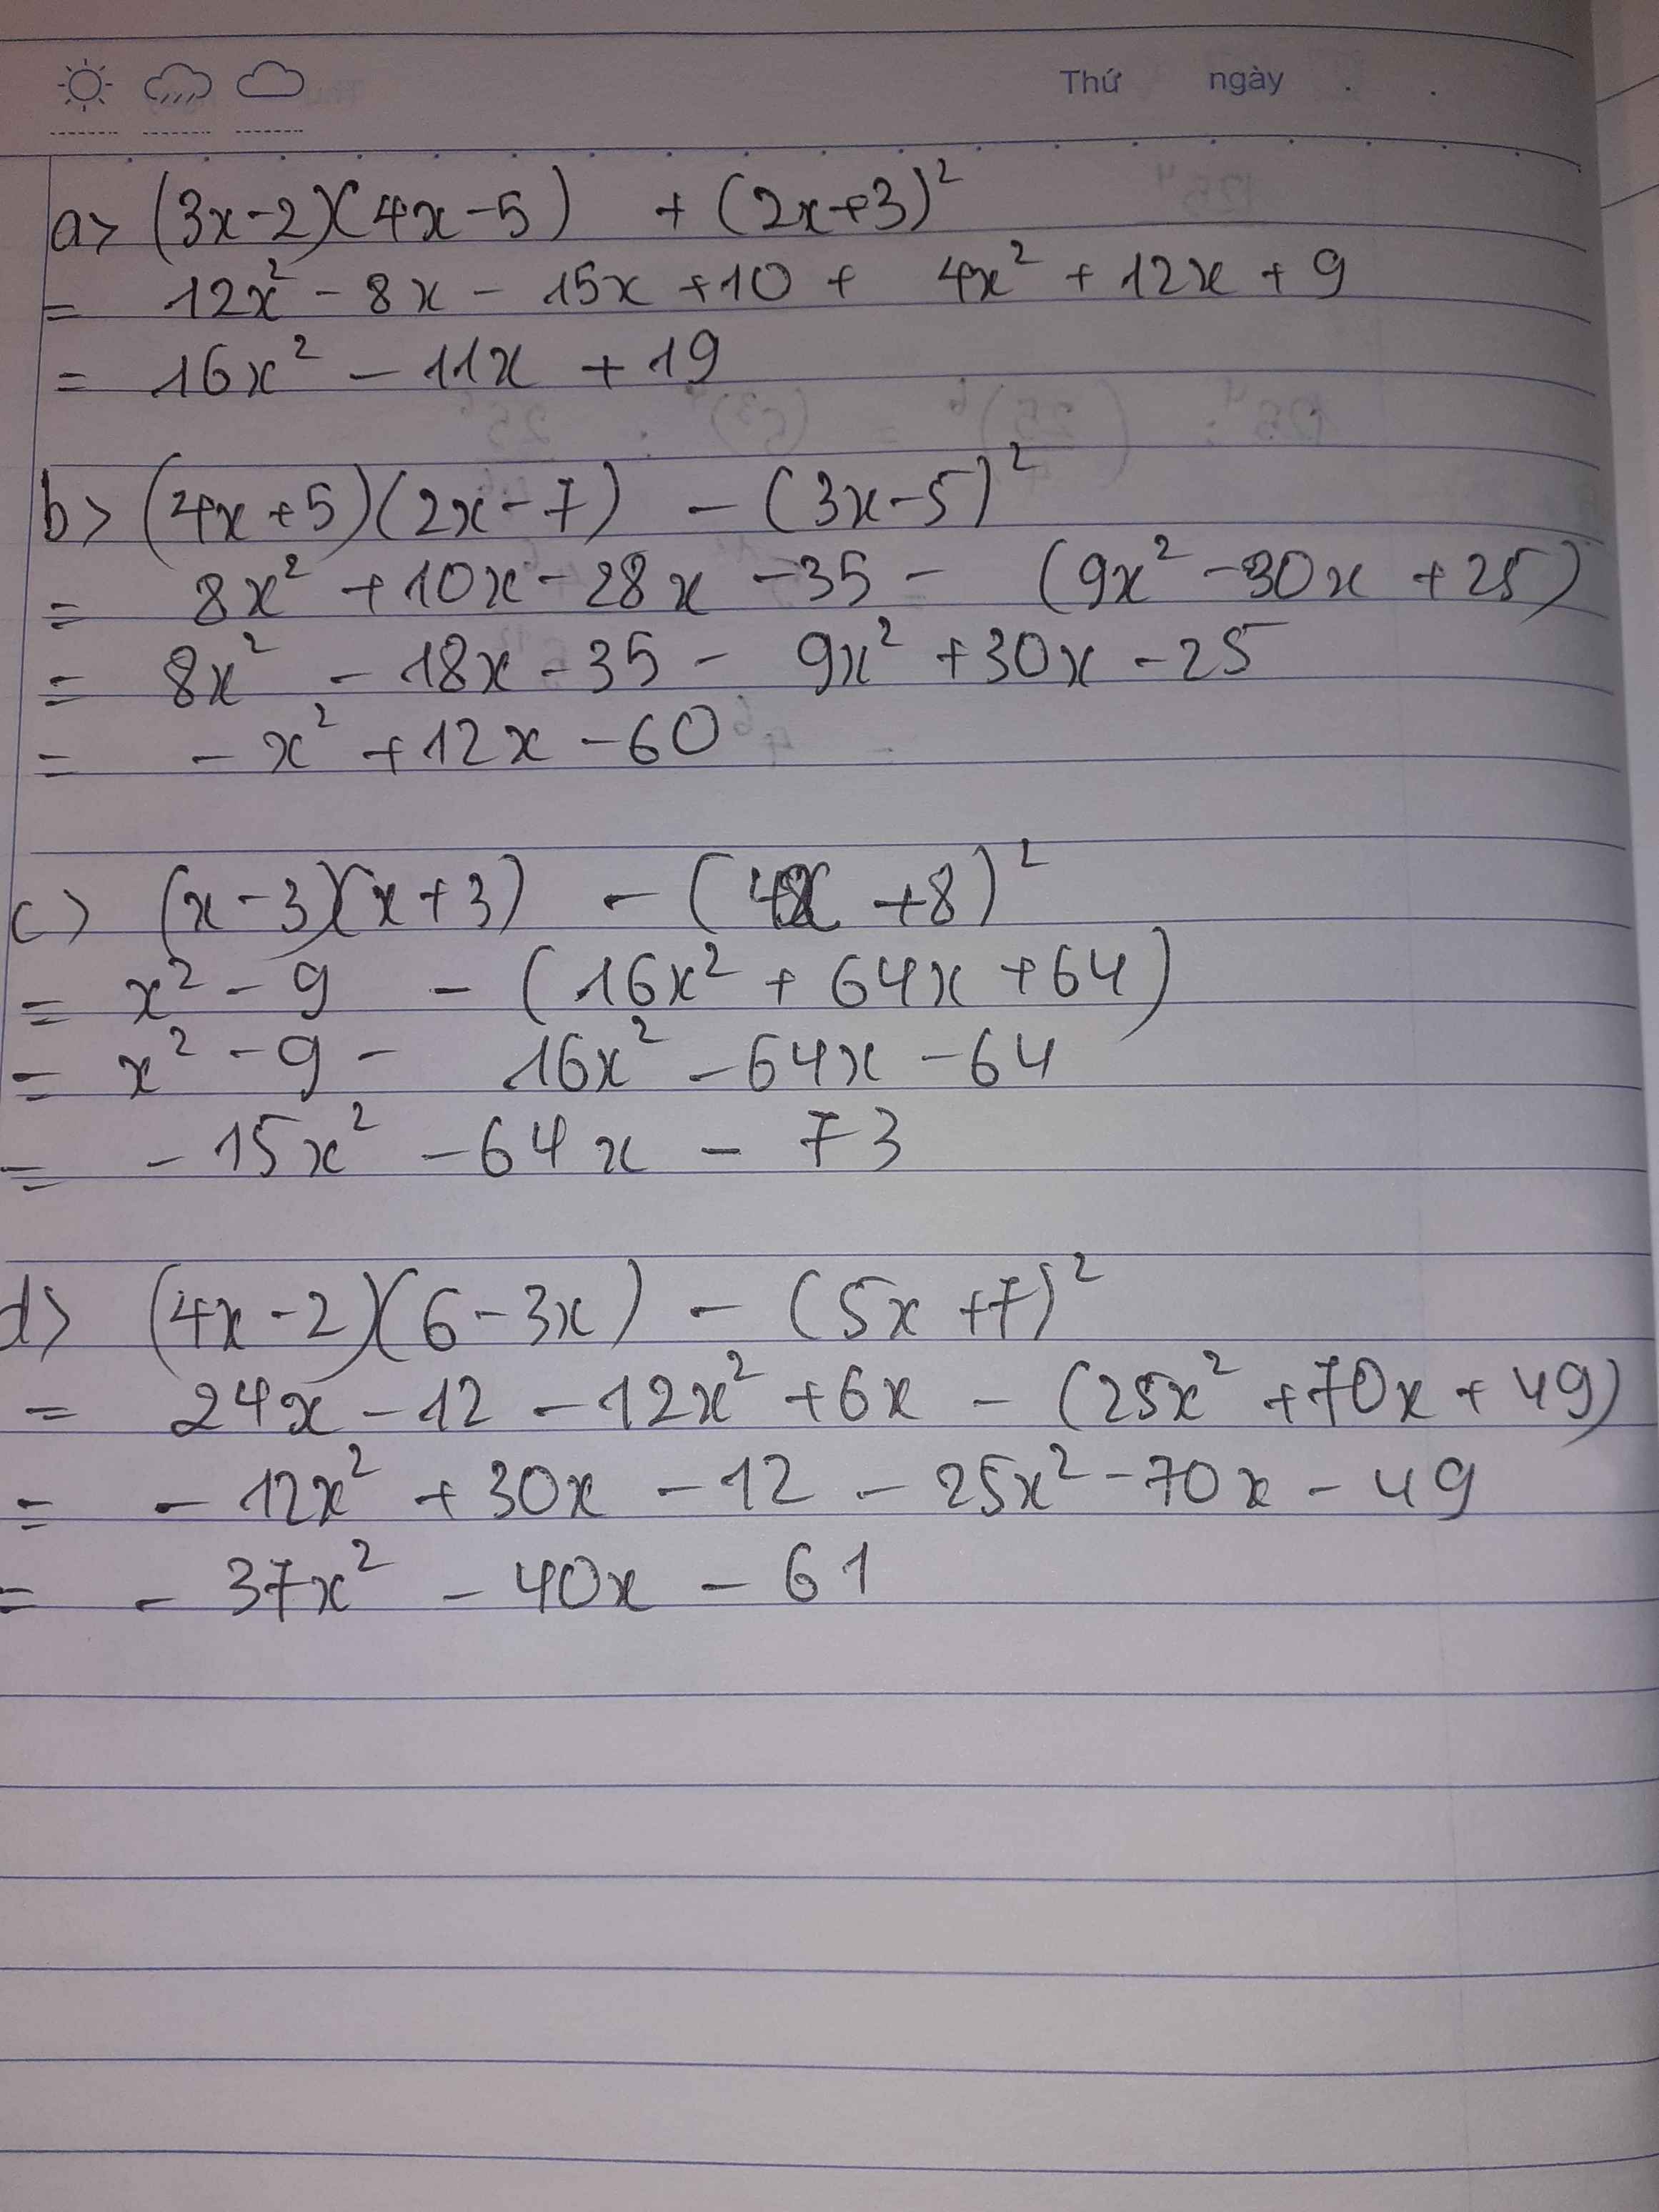 Thứ ngày . .
a> (3x-2)(4x-5) + (2x+3)²
= 12x² - 8x - 15x + 10 + 4x² + 12x + 9
= 16x² - 11x + 19
b> (4x+5)(2x-7) - (3x-5)²
= 8x² + 10x - 28x - 35 - (9x² - 30x + 25)
= 8x² - 18x - 35 - 9x² + 30x - 25
= - x² + 12x - 60
c> (x-3)(x+3) - (4x +8)²
= x² - 9 - (16x² + 64x + 64)
= x² - 9 - 16x² - 64x - 64
= - 15x² - 64x - 73
d> (4x-2)(6-3x) - (5x+7)²
= 24x - 12 - 12x² + 6x - (25x² + 70x + 49)
= - 12x² + 30x - 12 - 25x² - 70x - 49
= - 37x² - 40x - 61